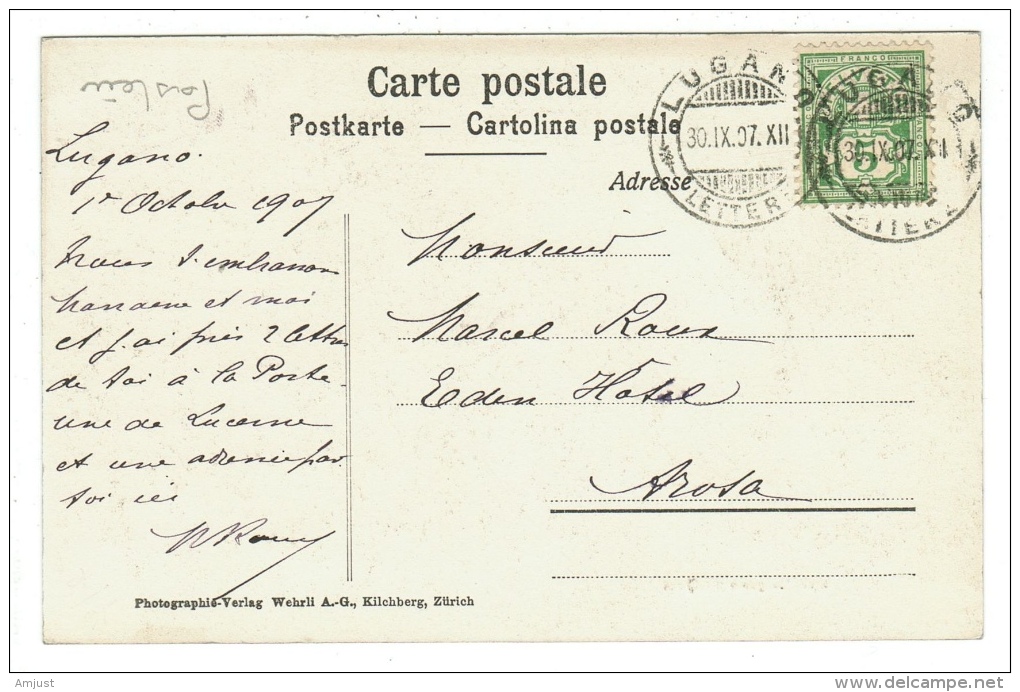 Carte postale
Postkarte — Cartolina postale
Adresse
LUGANO
30.IX.07.XII
LETTERE
LUGANO
30.IX.07.XII
LETTERE
FRANCO
5
Lugano.
1r Octobre 1907
Nous t'embrassons
Marraine et moi
et j'ai pris 2 lettres
de toi à la Poste
une de Lucerne
et une adressée par
toi ici
Monsieur
Marcel Roux
Eden Hotel
Arosa
Photographie-Verlag Wehrli A.-G., Kilchberg, Zürich
Amjust
delcampe.net